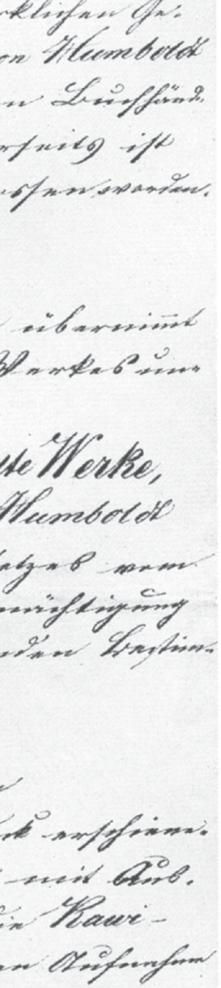 rklichen Ge-
on Humboldt
n Buchhänd-
rseits ist
ossen worden.
übernimmt
Werkes un-
te Werke,
Humboldt
etzes vom
mächtigung
nden Bestim-
ck erschiene-
mit Aus-
die Kawi-
en Aufnahme